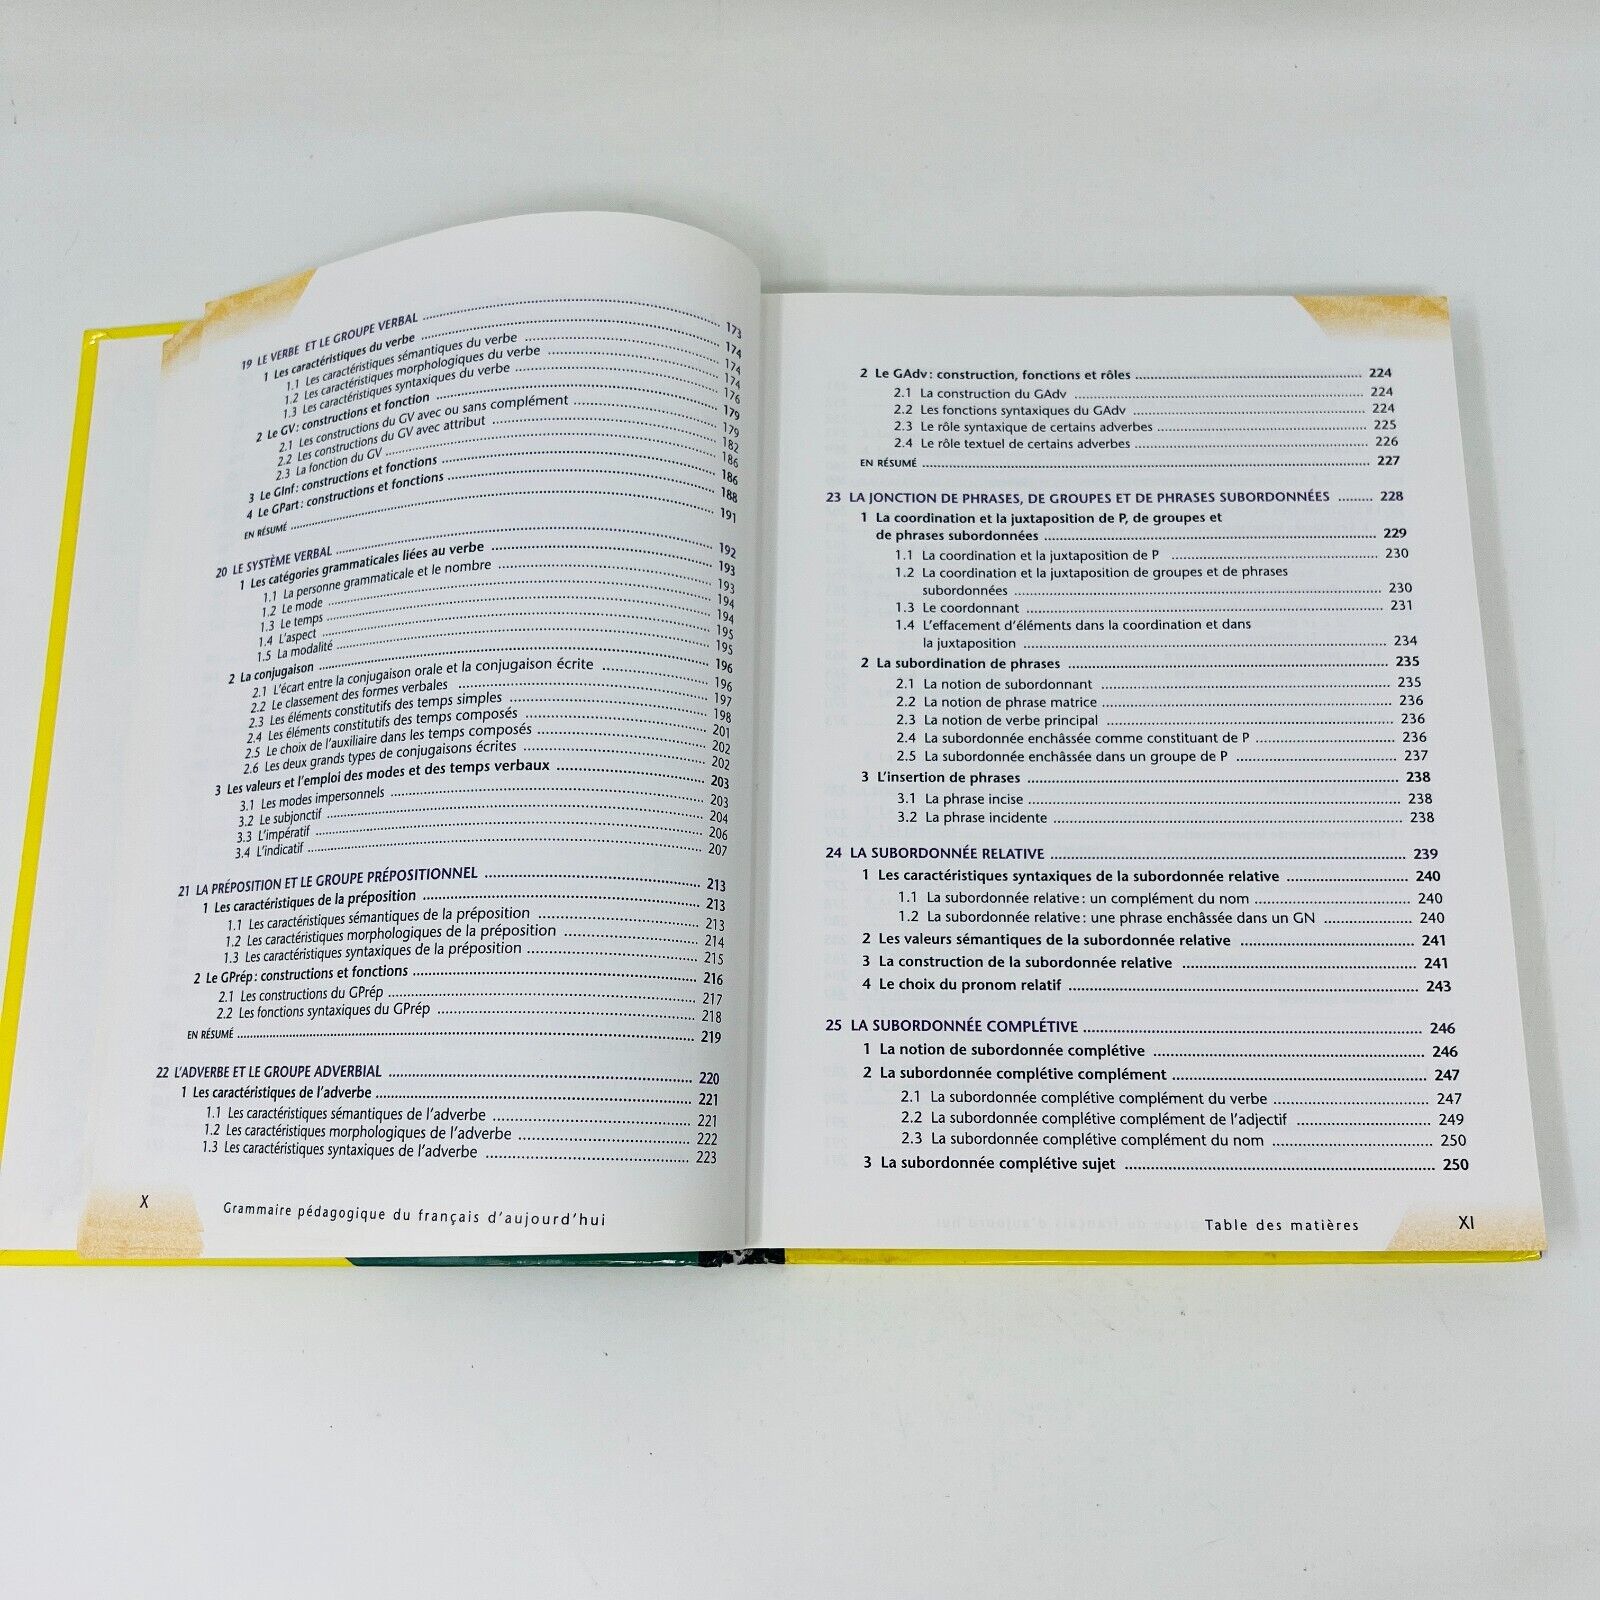 19 LE VERBE ET LE GROUPE VERBAL ........ 173
1 Les caractéristiques du verbe ........ 174
1.1 Les caractéristiques sémantiques du verbe ........ 174
1.2 Les caractéristiques morphologiques du verbe ........ 174
1.3 Les caractéristiques syntaxiques du verbe ........ 176
2 Le GV : constructions et fonction ........ 179
2.1 Les constructions du GV avec ou sans complément ........ 179
2.2 Les constructions du GV avec attribut ........ 182
2.3 La fonction du GV ........ 186
3 Le GInf : constructions et fonctions ........ 186
4 Le GPart : constructions et fonctions ........ 188
EN RÉSUMÉ ........ 191
20 LE SYSTÈME VERBAL ........ 192
1 Les catégories grammaticales liées au verbe ........ 193
1.1 La personne grammaticale et le nombre ........ 193
1.2 Le mode ........ 194
1.3 Le temps ........ 194
1.4 L'aspect ........ 195
1.5 La modalité ........ 195
2 La conjugaison ........ 196
2.1 L'écart entre la conjugaison orale et la conjugaison écrite ........ 196
2.2 Le classement des formes verbales ........ 197
2.3 Les éléments constitutifs des temps simples ........ 198
2.4 Les éléments constitutifs des temps composés ........ 201
2.5 Le choix de l'auxiliaire dans les temps composés ........ 202
2.6 Les deux grands types de conjugaisons écrites ........ 202
3 Les valeurs et l'emploi des modes et des temps verbaux ........ 203
3.1 Les modes impersonnels ........ 203
3.2 Le subjonctif ........ 204
3.3 L'impératif ........ 206
3.4 L'indicatif ........ 207
21 LA PRÉPOSITION ET LE GROUPE PRÉPOSITIONNEL ........ 213
1 Les caractéristiques de la préposition ........ 213
1.1 Les caractéristiques sémantiques de la préposition ........ 213
1.2 Les caractéristiques morphologiques de la préposition ........ 214
1.3 Les caractéristiques syntaxiques de la préposition ........ 215
2 Le GPrép : constructions et fonctions ........ 216
2.1 Les constructions du GPrép ........ 217
2.2 Les fonctions syntaxiques du GPrép ........ 218
EN RÉSUMÉ ........ 219
22 L'ADVERBE ET LE GROUPE ADVERBIAL ........ 220
1 Les caractéristiques de l'adverbe ........ 221
1.1 Les caractéristiques sémantiques de l'adverbe ........ 221
1.2 Les caractéristiques morphologiques de l'adverbe ........ 222
1.3 Les caractéristiques syntaxiques de l'adverbe ........ 223
X Grammaire pédagogique du français d'aujourd'hui
2 Le GAdv : construction, fonctions et rôles ........ 224
2.1 La construction du GAdv ........ 224
2.2 Les fonctions syntaxiques du GAdv ........ 224
2.3 Le rôle syntaxique de certains adverbes ........ 225
2.4 Le rôle textuel de certains adverbes ........ 226
EN RÉSUMÉ ........ 227
23 LA JONCTION DE PHRASES, DE GROUPES ET DE PHRASES SUBORDONNÉES ........ 228
1 La coordination et la juxtaposition de P, de groupes et
de phrases subordonnées ........ 229
1.1 La coordination et la juxtaposition de P ........ 230
1.2 La coordination et la juxtaposition de groupes et de phrases
subordonnées ........ 230
1.3 Le coordonnant ........ 231
1.4 L'effacement d'éléments dans la coordination et dans
la juxtaposition ........ 234
2 La subordination de phrases ........ 235
2.1 La notion de subordonnant ........ 235
2.2 La notion de phrase matrice ........ 236
2.3 La notion de verbe principal ........ 236
2.4 La subordonnée enchâssée comme constituant de P ........ 236
2.5 La subordonnée enchâssée dans un groupe de P ........ 237
3 L'insertion de phrases ........ 238
3.1 La phrase incise ........ 238
3.2 La phrase incidente ........ 238
24 LA SUBORDONNÉE RELATIVE ........ 239
1 Les caractéristiques syntaxiques de la subordonnée relative ........ 240
1.1 La subordonnée relative : un complément du nom ........ 240
1.2 La subordonnée relative : une phrase enchâssée dans un GN ........ 240
2 Les valeurs sémantiques de la subordonnée relative ........ 241
3 La construction de la subordonnée relative ........ 241
4 Le choix du pronom relatif ........ 243
25 LA SUBORDONNÉE COMPLÉTIVE ........ 246
1 La notion de subordonnée complétive ........ 246
2 La subordonnée complétive complément ........ 247
2.1 La subordonnée complétive complément du verbe ........ 247
2.2 La subordonnée complétive complément de l'adjectif ........ 249
2.3 La subordonnée complétive complément du nom ........ 250
3 La subordonnée complétive sujet ........ 250
Table des matières XI